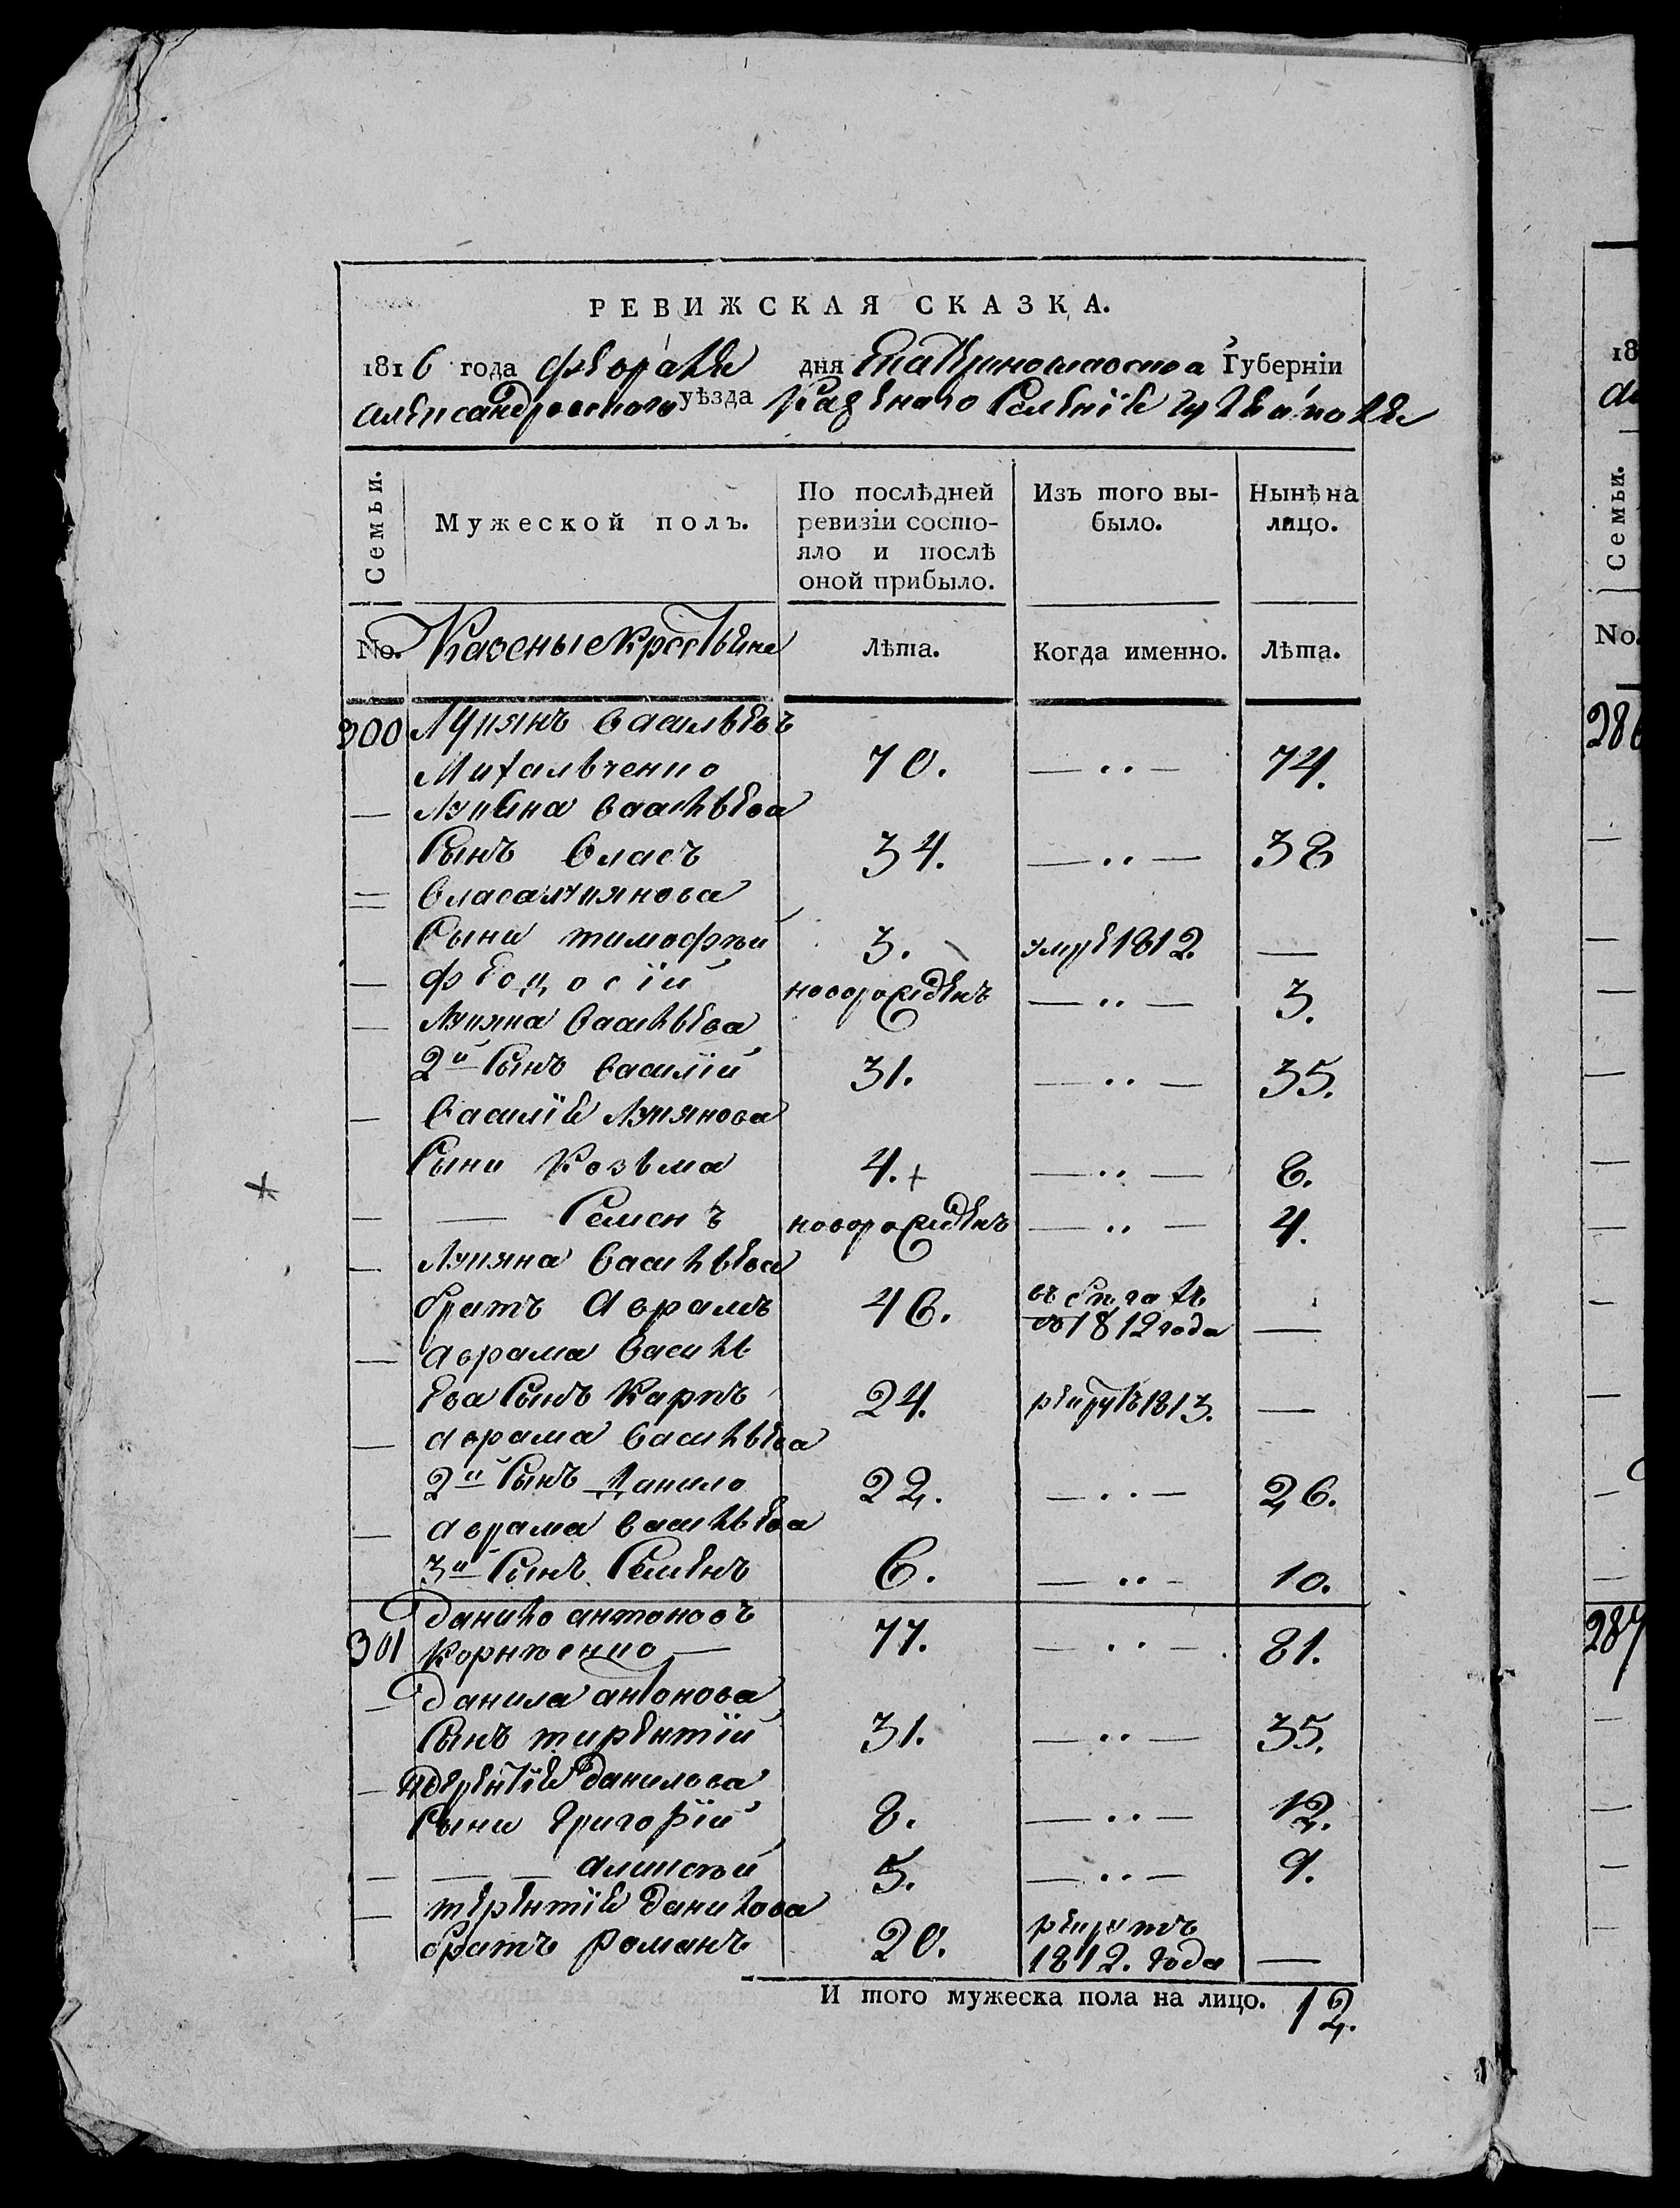 РЕВИЖСКАЯ СКАЗКА.
1816 года февраля дня Екатеринославской Губерніи
Александровского уѣзда Казенного Селенія
Семьи.
Мужеской полъ.
По послѣдней ревизіи состо-
яло и послѣ
оной прибыло.
Изъ того вы-
было.
Нынѣ на
лицо.
No. Казеные Крестьяне
Лѣта.
Когда именно.
Лѣта.
300 Лукянъ Васильевъ
Михальченко 70. — .. — 74.
— Лукяна Васильева
Сынъ Власъ 34. — .. — 38
Власа Лукянова
Сыни тимофѣй 3. умре 1812. —
— Федосій новорожденъ — .. — 3.
— Лукяна Васильева
2й Сынъ Василій 31. — .. — 35.
— Василіе Лукянова
Сыни Козьма 4.+ — .. — 8.
— — Семенъ новорожденъ — .. — 4.
— Лукяна Васильева
братъ Аврамъ 46. съ 1812 года —
— Аврама Василь
ева Сынъ Карпъ 24. рекрутъ 1813. —
— Аврама Васильева
2й Сынъ Данило 22. — .. — 26.
— Аврама Васильева
3й Сынъ Семенъ 6. — .. — 10.
301 Данило антоновъ
Корнѣенко — 77. — .. — 81.
— Данила антонова
Сынъ тирентій 31. — .. — 35.
— Данилова
Сыни Григорій 8. — .. — 12.
— — — алексѣй 5. — .. — 9.
— терентіе Данилова
братъ романъ 20. рекрутъ
1812. года —
И того мужеска пола на лицо. 12.
18
Семьи.
No.
286
287